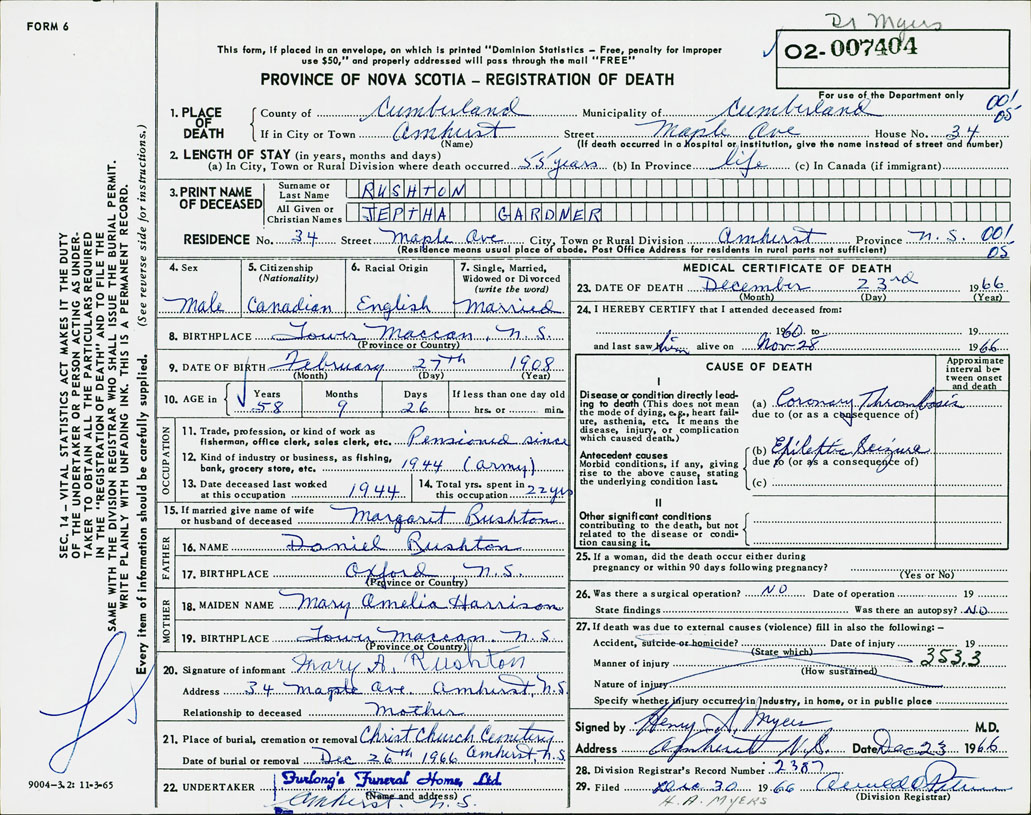 FORM 6
Dr Myers
02-007404
This form, if placed in an envelope, on which is printed "Dominion Statistics – Free, penalty for improper
use $50," and properly addressed will pass through the mail "FREE"
PROVINCE OF NOVA SCOTIA – REGISTRATION OF DEATH
For use of the Department only
001
05
1. PLACE OF DEATH
County of Cumberland Municipality of Cumberland
If in City or Town Amherst Street Maple Ave House No. 34
(Name) (If death occurred in a Hospital or Institution, give the name instead of street and number)
2. LENGTH OF STAY (in years, months and days)
(a) In City, Town or Rural Division where death occurred 55 years (b) In Province life (c) In Canada (if immigrant)
3. PRINT NAME OF DECEASED
Surname or Last Name RUSHTON
All Given or Christian Names JEPTHA GARDNER
RESIDENCE No. 34 Street Maple Ave City, Town or Rural Division Amherst Province N.S. 001
(Residence means usual place of abode. Post Office Address for residents in rural parts not sufficient) 05
4. Sex Male
5. Citizenship (Nationality) Canadian
6. Racial Origin English
7. Single, Married, Widowed or Divorced (write the word) Married
8. BIRTHPLACE Lower Maccan, N.S.
(Province or Country)
9. DATE OF BIRTH February 27th 1908
(Month) (Day) (Year)
10. AGE in Years 58 Months 9 Days 26 If less than one day old hrs. or min.
OCCUPATION
11. Trade, profession, or kind of work as
fisherman, office clerk, sales clerk, etc. Pensioned since
12. Kind of industry or business, as fishing,
bank, grocery store, etc. 1944 (army)
13. Date deceased last worked
at this occupation 1944
14. Total yrs. spent in
this occupation 22 yrs
15. If married give name of wife
or husband of deceased Margaret Rushton
FATHER
16. NAME Daniel Rushton
17. BIRTHPLACE Oxford N.S.
(Province or Country)
MOTHER
18. MAIDEN NAME Mary Amelia Harrison
19. BIRTHPLACE Lower Maccan, N.S.
(Province or Country)
20. Signature of informant Mary A. Rushton
Address 34 Maple Ave. Amherst, N.S.
Relationship to deceased Mother
21. Place of burial, cremation or removal Christ Church Cemetery
Date of burial or removal Dec 26th 1966 Amherst, N.S.
22. UNDERTAKER Furlong's Funeral Home, Ltd.
(Name and address)
Amherst, N.S.
MEDICAL CERTIFICATE OF DEATH
23. DATE OF DEATH December 23rd 1966
(Month) (Day) (Year)
24. I HEREBY CERTIFY that I attended deceased from:
1960 to 19
and last saw him alive on Nov 28 1966
CAUSE OF DEATH
Approximate interval between onset and death
I
Disease or condition directly leading to death (This does not mean the mode of dying, e.g., heart failure, asthenia, etc. It means the disease, injury, or complication which caused death.)
(a) Coronary Thrombosis
due to (or as a consequence of)
Antecedent causes
Morbid conditions, if any, giving rise to the above cause, stating the underlying condition last.
(b) Epileptic Seizure
due to (or as a consequence of)
(c)
II
Other significant conditions
contributing to the death, but not related to the disease or condition causing it.
25. If a woman, did the death occur either during
pregnancy or within 90 days following pregnancy?
(Yes or No)
26. Was there a surgical operation? NO Date of operation 19
State findings Was there an autopsy? NO
27. If death was due to external causes (violence) fill in also the following: –
Accident, suicide or homicide? Date of injury 19
(State which)
353.3
Manner of injury
(How sustained)
Nature of injury
Specify whether injury occurred in Industry, in home, or in public place
Signed by Henry A. Myers M.D.
Address Amherst N.S. Date Dec 23 1966
28. Division Registrar's Record Number 2387
29. Filed Dec 30 1966
(Division Registrar)
H. A. MYERS
SEC. 14 – VITAL STATISTICS ACT MAKES IT THE DUTY
OF THE UNDERTAKER OR PERSON ACTING AS UNDER-
TAKER TO OBTAIN ALL THE PARTICULARS REQUIRED
IN THE "REGISTRATION OF DEATH" AND TO FILE THE
SAME WITH THE DIVISION REGISTRAR WHO SHALL ISSUE THE BURIAL PERMIT.
WRITE PLAINLY WITH UNFADING INK. THIS IS A PERMANENT RECORD.
Every item of information should be carefully supplied. (See reverse side for instructions.)
9004-3.2: 11-3-65